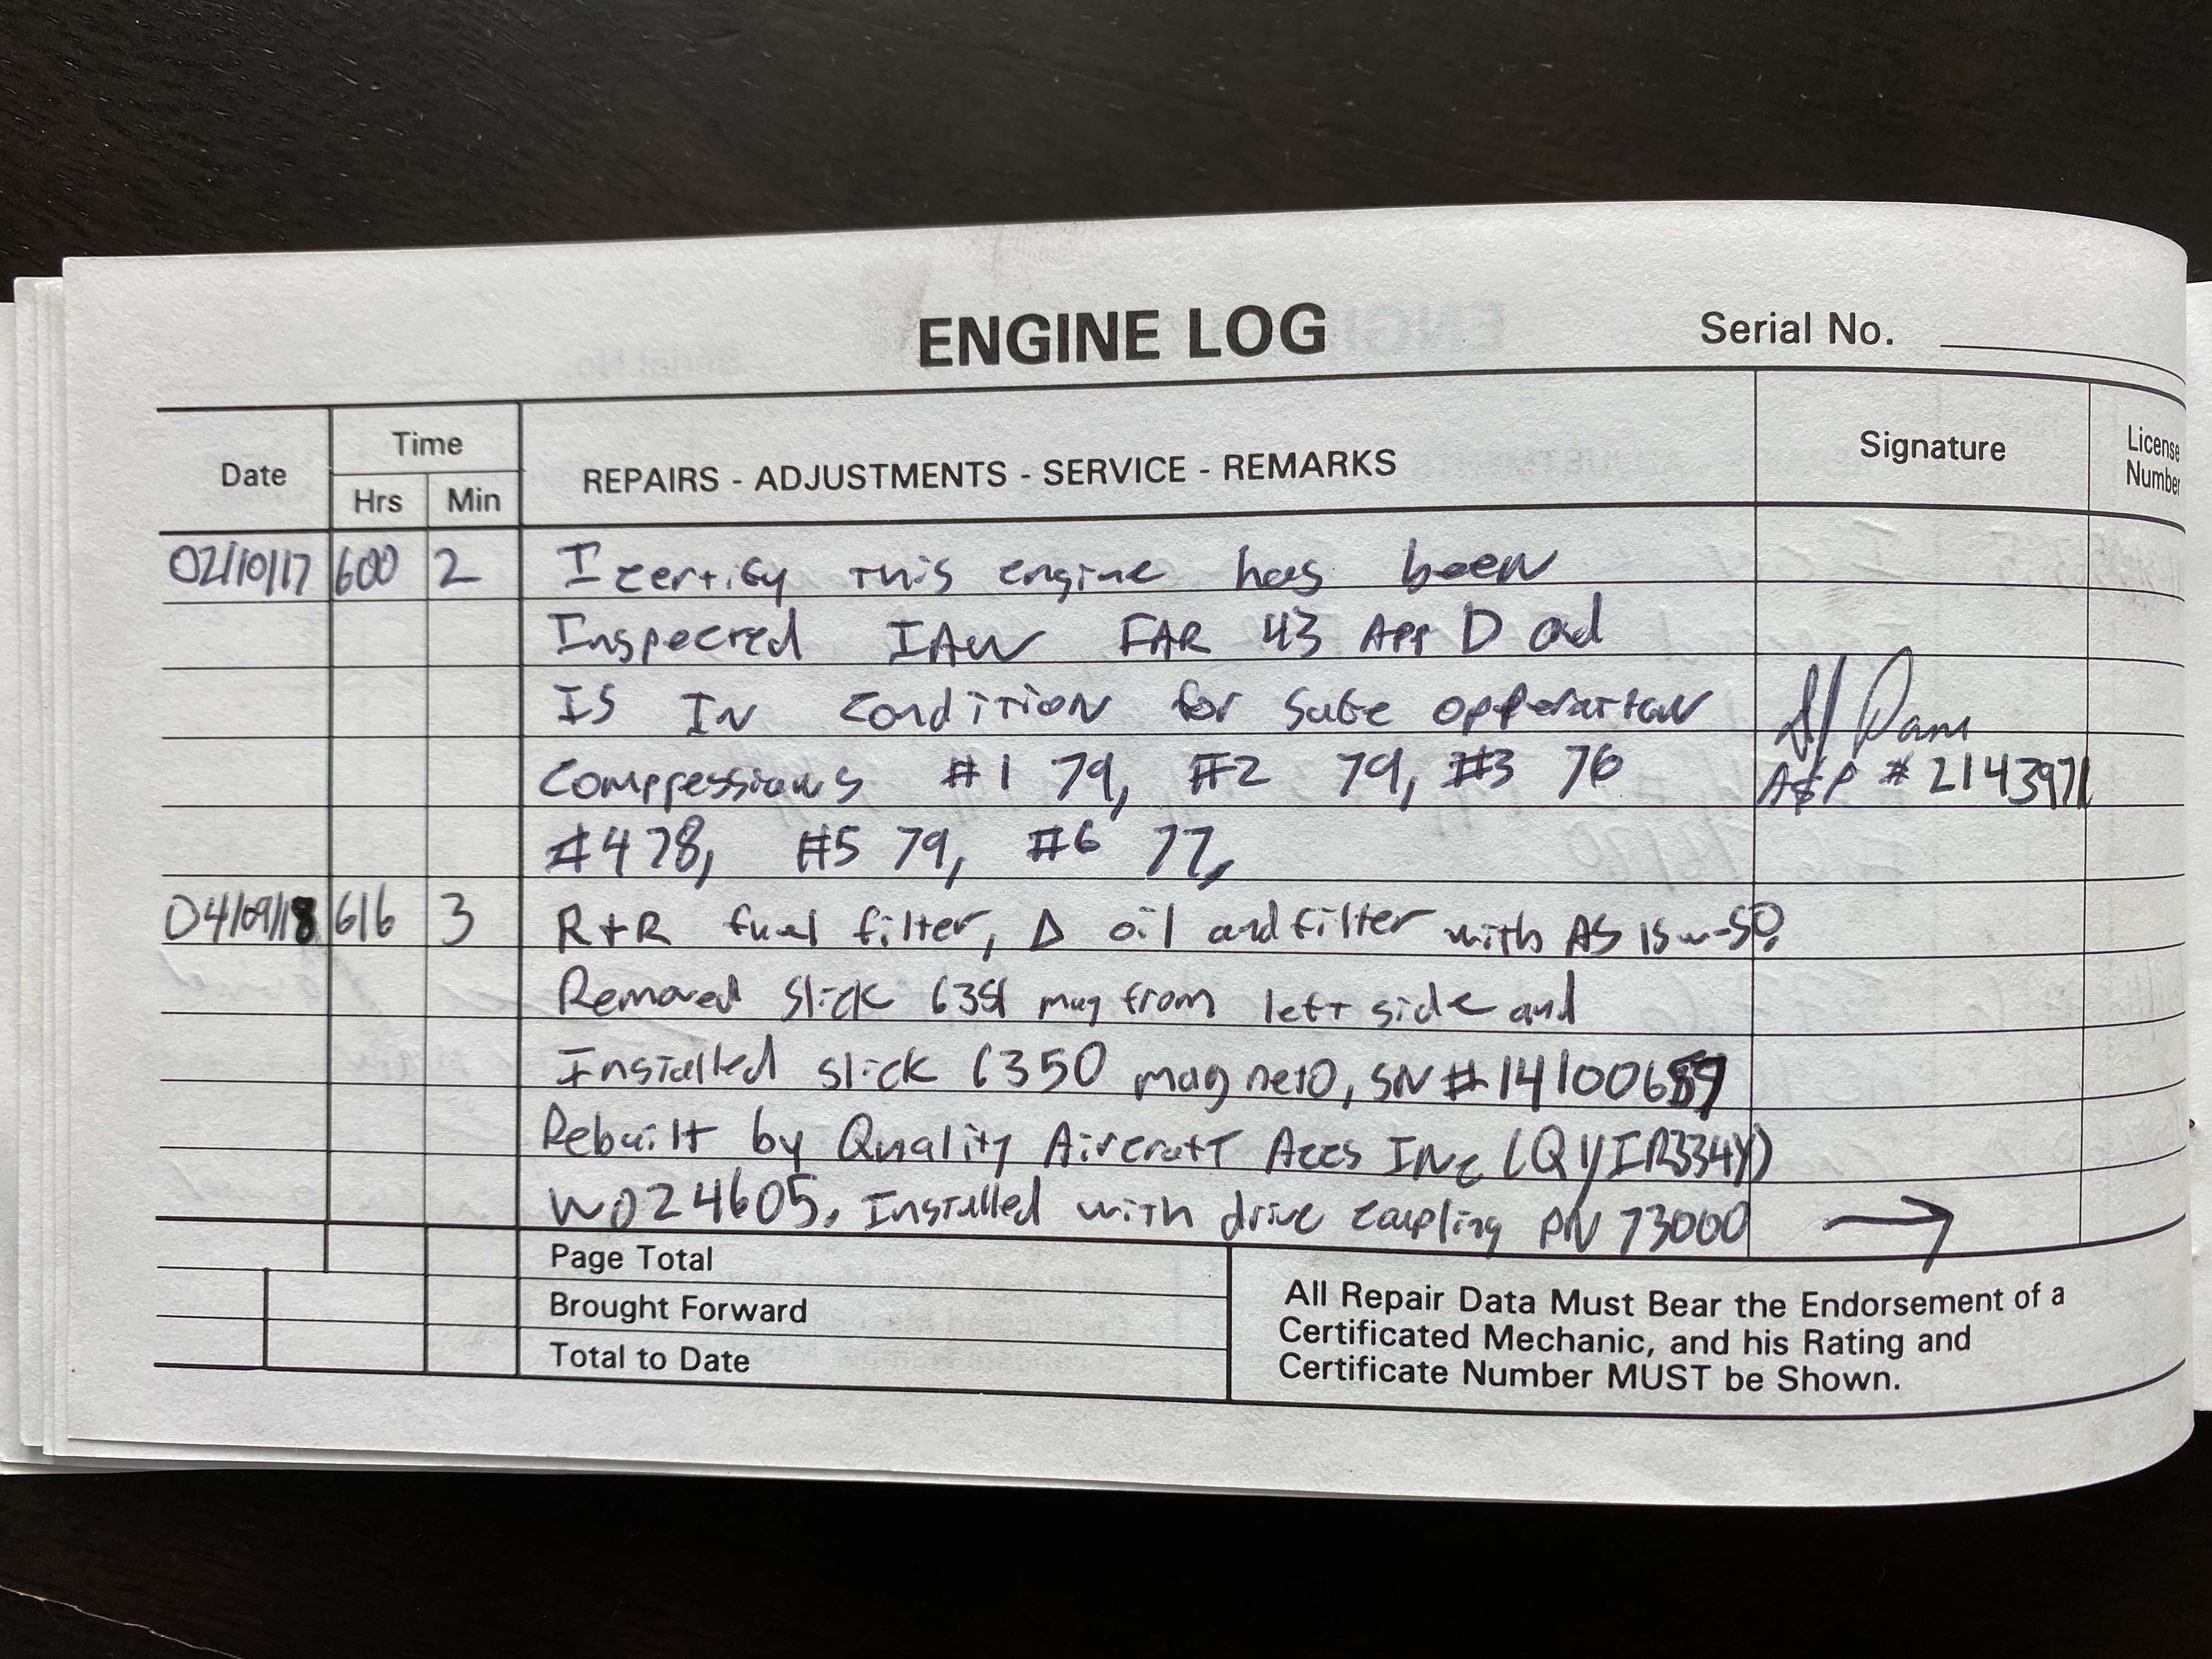 ENGINE LOG Serial No.
Date Time Hrs Min REPAIRS - ADJUSTMENTS - SERVICE - REMARKS Signature License Number
02/10/17 600 2 I certify this engine has been
Inspected IAW FAR 43 App D ad
IS In condition for safe opperation
Compressions #1 79, #2 79, #3 76 A&P # 2143971
#4 78, #5 79, #6 77,
04/09/18 616 3 R+R fuel filter, Δ oil and filter with AS 15w-50,
Removed slick 6351 mag from left side and
Installed slick 6350 magneto, SN# 14100689
Rebuilt by Quality Aircraft Aces INC (QYIR334Y)
WO24605, Installed with drive coupling PN 73000 →
Page Total
Brought Forward
Total to Date
All Repair Data Must Bear the Endorsement of a
Certificated Mechanic, and his Rating and
Certificate Number MUST be Shown.